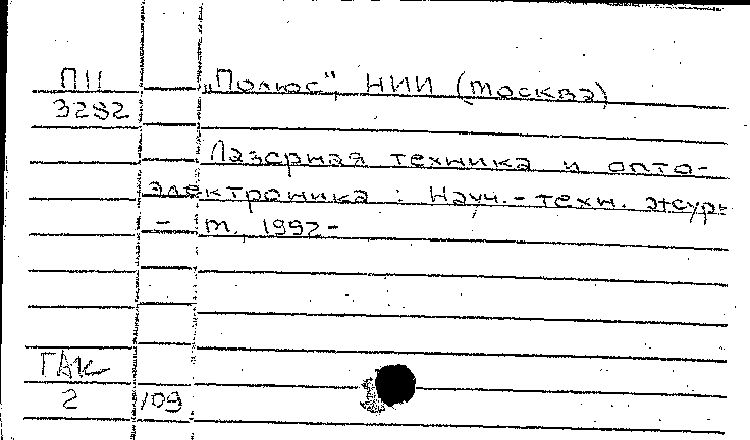 П11 „Полюс“, НИИ (Москва)
3282
Лазерная техника и опто-
электроника : Науч.-техн. журн.
- М., 1992-
ГАК
2 /09